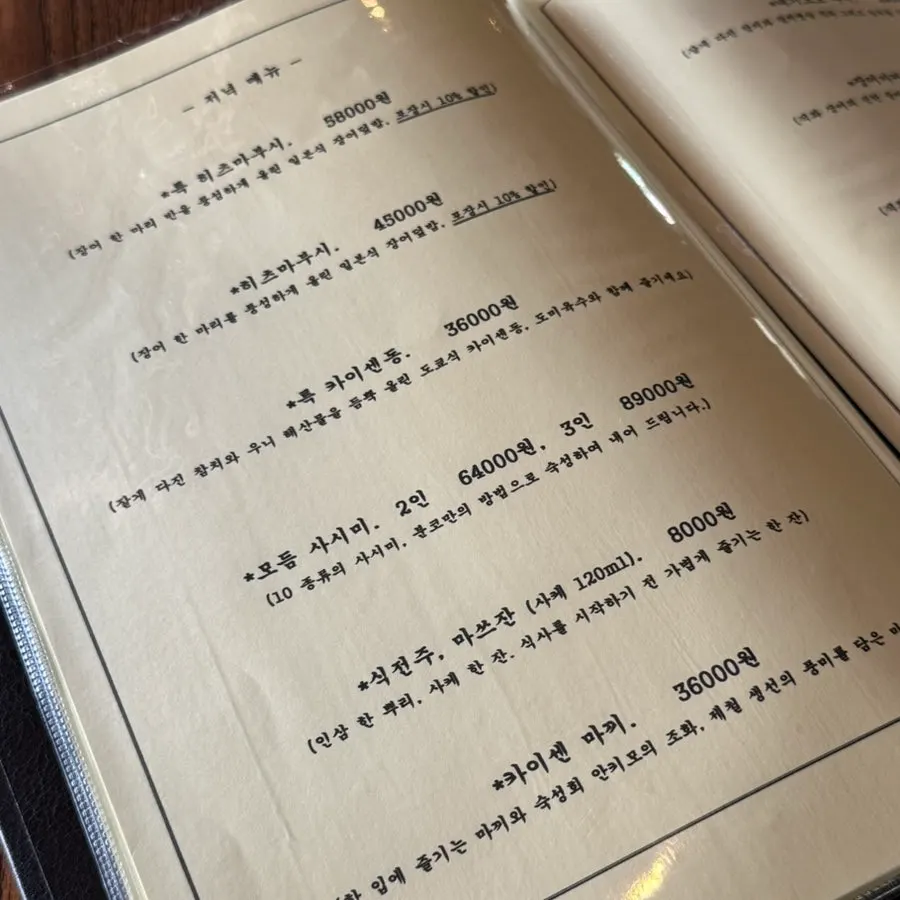 - 저녁 메뉴 -
*특 히츠마부시. 58000원
(장어 한 마리 반을 풍성하게 올린 일본식 장어덮밥. 포장시 10% 할인)
*히츠마부시. 45000원
(장어 한 마리를 풍성하게 올린 일본식 장어덮밥. 포장시 10% 할인)
*특 카이센동. 36000원
(잘게 다진 참치와 우니 해산물을 듬뿍 올린 도쿄식 카이센동, 도미육수와 함께 즐기세요)
*모듬 사시미. 2인 64000원, 3인 89000원
(10 종류의 사시미. 분코만의 방법으로 숙성하여 내어 드립니다.)
*식전주, 마쓰잔 (사케 120ml). 8000원
(인삼 한 뿌리. 사케 한 잔. 식사를 시작하기 전 가볍게 즐기는 한 잔)
*카이센 마끼. 36000원
입에 즐기는 마끼와 숙성회 안키모의 조화, 제철 생선의 풍미를 담은